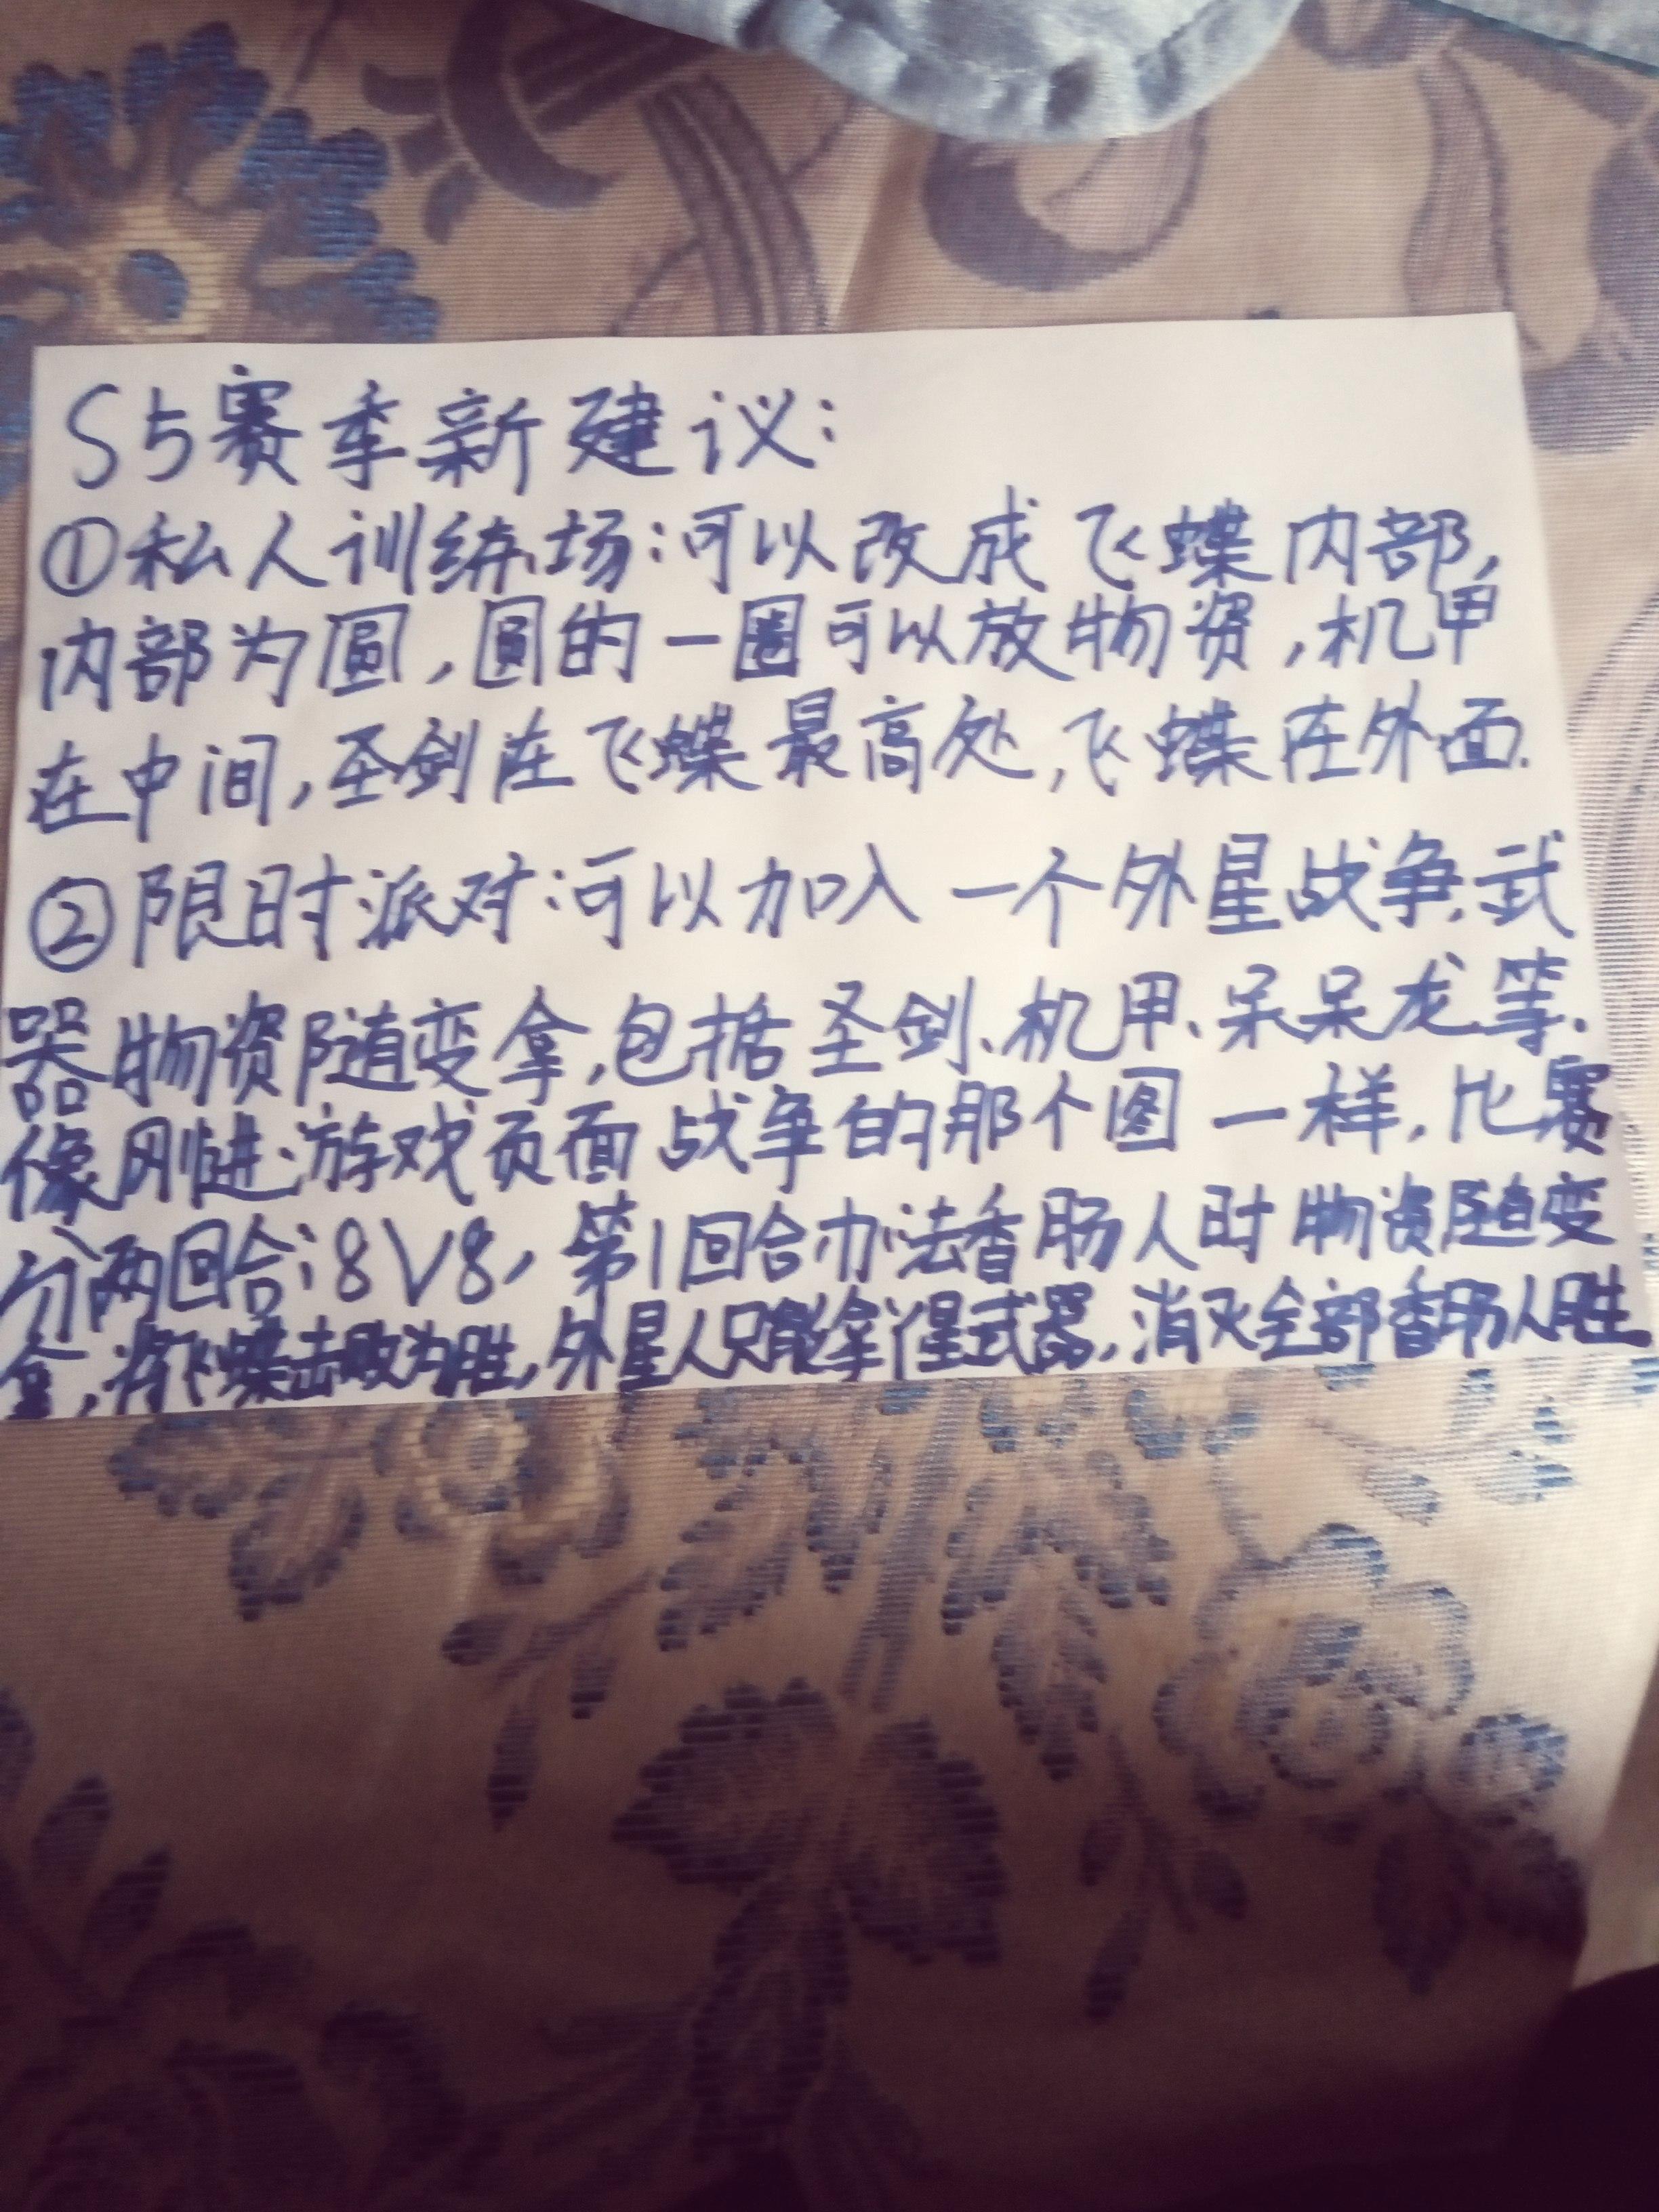 S5赛季新建议:
①私人训练场:可以改成飞蝶内部,
内部为圆,圆的一圈可以放物资,机甲
在中间,圣剑在飞蝶最高处,飞蝶在外面.
②限时派对:可以加入一个外星战争.武
器物资随变拿,包括圣剑、机甲、呆呆龙等.
像刚进游戏页面战争的那个图一样,比赛
分两回合:8V8,第1回合办法香肠人时物资随变
拿,将飞蝶击败为胜,外星人只能拿外星武器,消灭全部香肠人胜